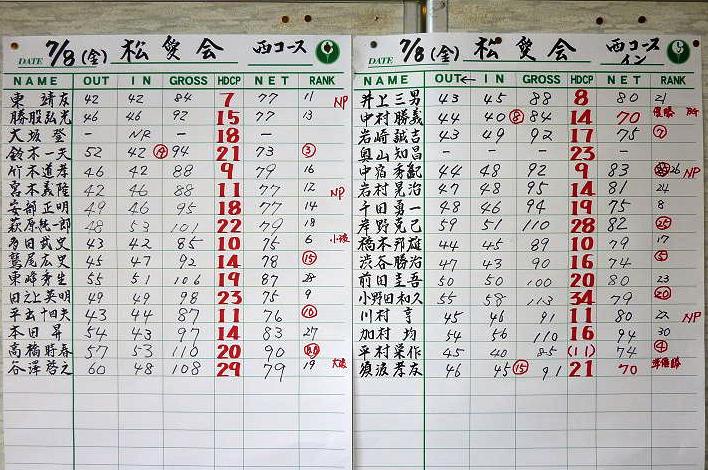 DATE 7/8(金) 松愛会 西コース
NAME OUT IN GROSS HDCP NET RANK
東 靖友 42 42 84 7 77 11 NP
勝股弘光 46 46 92 15 77 13
大坂 登 - NR - 18 -
鈴木一夫 52 42 94 21 73 3
竹本道孝 46 42 88 9 79 16
宮本義隆 42 46 88 11 77 12 NP
安部正明 49 46 95 18 77 14
萩原純一郎 48 53 101 22 79 18
多田武史 43 42 85 10 75 6 小波
鷲尾広史 45 47 92 14 78 15
東峰秀生 55 51 106 19 87 28
田之上英明 49 49 98 23 75 9
平玄十四夫 43 44 87 11 76 10
本田 昇 54 43 97 14 83 27
高橋時春 57 53 110 20 90
谷澤啓之 60 48 108 29 79 19 大波
DATE 7/8(金) 松愛会 西コース イン
NAME OUT← IN GROSS HDCP NET RANK
井上三男 43 45 88 8 80 21
中村勝義 44 40 8 84 14 70 優勝
岩崎誠吉 43 49 92 17 75 7
奥山知昌 - - - 23 -
中宿秀範 44 48 92 9 83 26 NP
岩村晃治 47 48 95 14 81 24
千田勇一 48 46 94 19 75 8
岸野克己 59 51 110 28 82 25
橋本邦雄 44 45 89 10 79 17
渋谷勝治 47 43 90 16 74 5
前田圭吾 50 50 100 20 80 23
小野田和久 55 58 113 34 79 20
川村 亨 45 46 91 11 80 22 NP
加村 均 54 56 110 16 94 30
平村栄作 45 40 85 (11) 74 4
須波孝友 46 45 15 91 21 70 準優勝